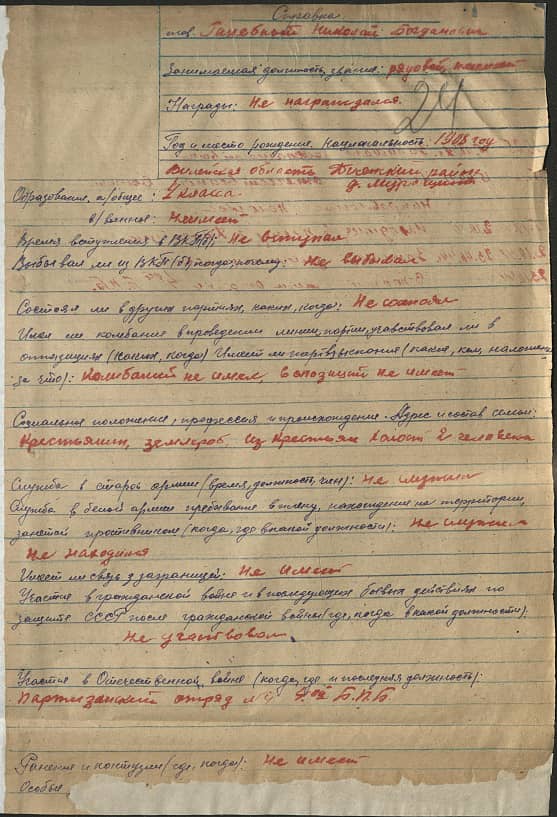 Справка
тов. Николай Богданович
Занимаемая должность, звание: рядовой,
Награды: Не награждался.
24
Год и место рождения. Национальность: 1908 году
область район
д.
Образование, а/общее: 2 класа
в/военное: Неимеет
Время вступления в ВКП(б): Не вступал
Выбывал ли из ВКП(б) когда, почему: Не выбывал
Состоял ли в других партиях, каких, когда: Не состоял
Имел ли колебание в проведении линии партии, учавствовал ли в
опозициях (каких, когда) Имеет ли партвзыскания (какие, кем, наложены
за что): Колебаний не имел, в опозиций не имеет
Социальное положение, профессия и происхождение. Адрес и состав семьи:
Крестьянин, землероб из крестьян Холост 2 человека
Служба в старой армии (время, должность, чин): Не служил
Служба в белой армии пребывание в плену, нахождение на территории,
занятой противником (когда, где в какой должности): Не служил
Не находился
Имеет ли связь з заграницей: Не имеет
Участие в гражданской войне и в последующих боевых действиях по
защите СССР после гражданской войны (где, когда в какой должности):
Не участвовал
Участие в Отечественной войне (когда, где и последняя должность):
Партизанский отряд Б.П.Б.
Ранения и контузии (где, когда): Не имеет
Особые